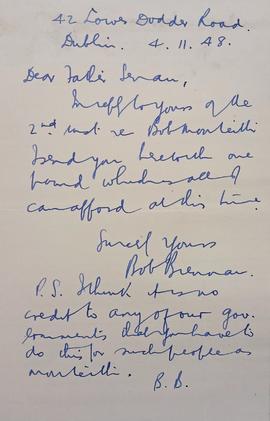 42 Lower Dodder Road.
Dublin. 4.11.48.
Dear Father Senan,
In reply to yours of the
2nd inst. re Bob Monteith
I send you herewith one
pound which is all I
can afford at this time
Sincerely Yours
Bob Brennan.
P.S. I think it is no
credit to any of our gov-
ernments that you have to
do this for such people as
Monteith.
B.B.